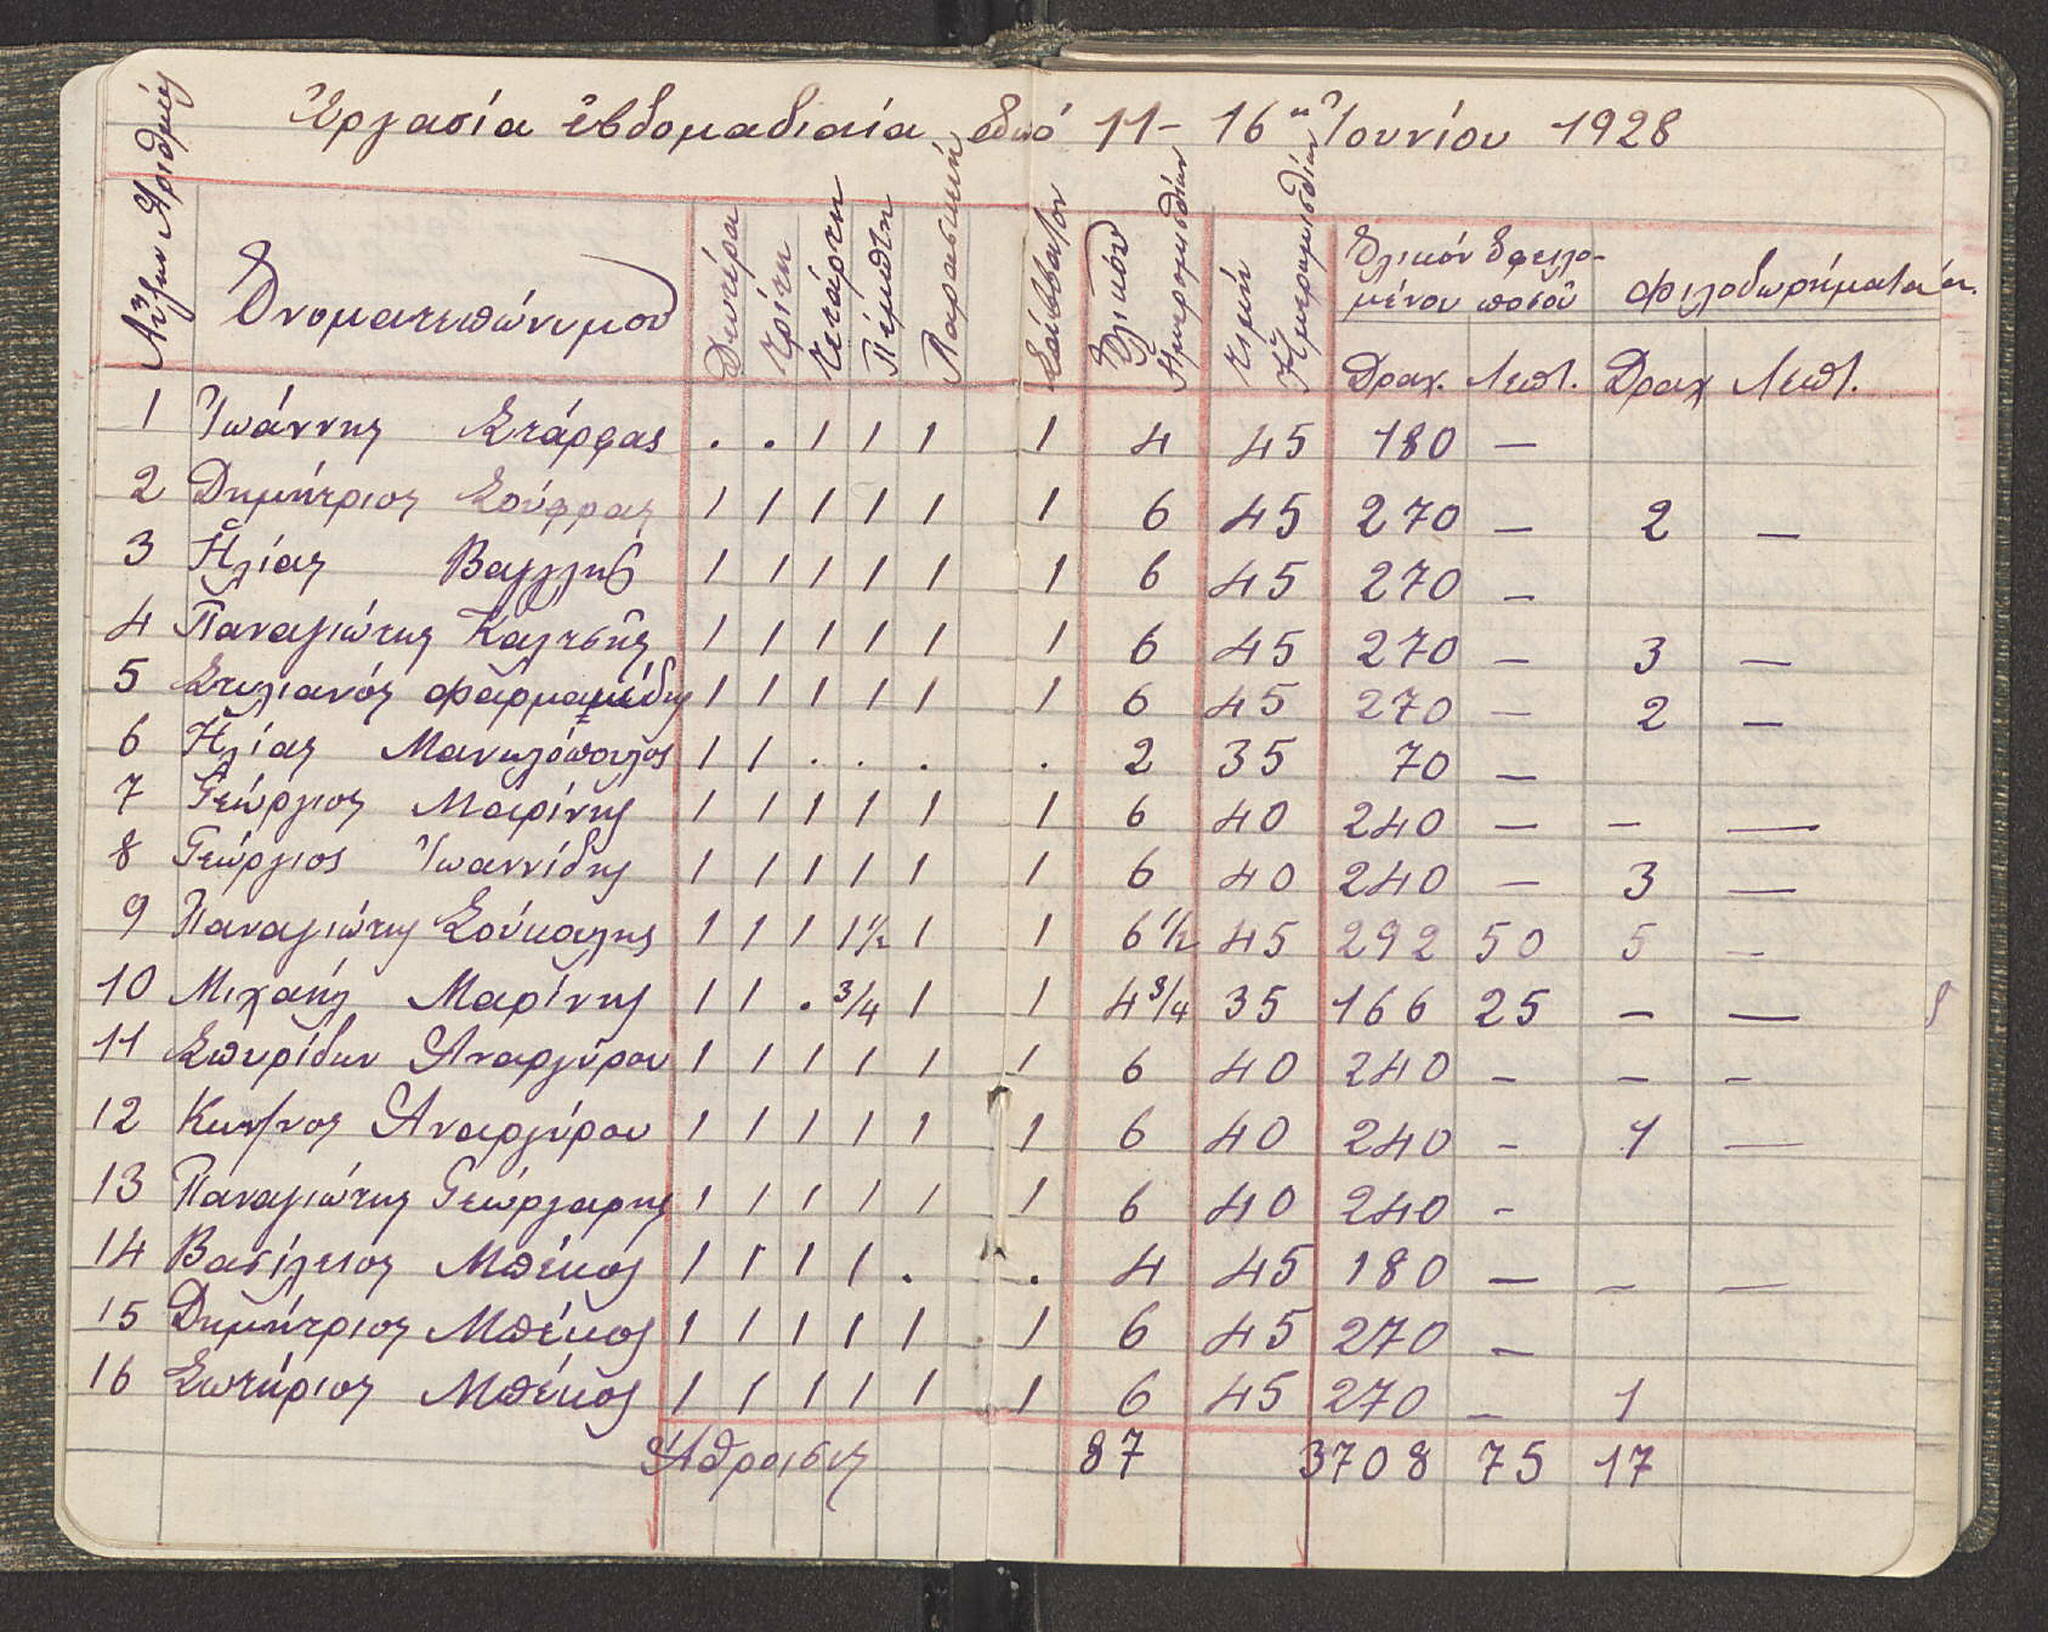 Ἐργασία ἑβδομαδιαία ἀπό 11 - 16 Ἰουνίου 1928
Αὔξων Ἀριθμός
Ὀνοματεπώνυμον
Δευτέρα Τρίτη Τετάρτη Πέμπτη Παρασκευή Σάββατον
Ὁλικόν Ἡμερομισθίων
Τιμή Ἡμερομισθίων
Ὁλικόν Ὀφειλο-
μένου ποσοῦ
Φιλοδωρήματα
Δραχ. Λεπτ. Δραχ Λεπτ.
1 Ἰωάννης Στάρφας . . 1 1 1 1 4 45 180 —
2 Δημήτριος Σούφρας 1 1 1 1 1 1 6 45 270 — 2 —
3 Ἠλίας Βαγγλής 1 1 1 1 1 1 6 45 270 —
4 Παναγιώτης Καλτσῆς 1 1 1 1 1 1 6 45 270 — 3 —
5 Στυλιανός 1 1 1 1 1 1 6 45 270 — 2 —
6 Ἠλίας Μανωλόπουλος 1 1 . . . . 2 35 70 —
7 Γεώργιος Μαρίνης 1 1 1 1 1 1 6 40 240 — — —
8 Γεώργιος Ἰωαννίδης 1 1 1 1 1 1 6 40 240 — 3 —
9 Παναγιώτης Σούκουλης 1 1 1 1½ 1 1 6½ 45 292 50 5 —
10 Μιχαήλ Μαρίνης 1 1 . 3/4 1 1 4 3/4 35 166 25 — —
11 Σπυρίδων Ἀναργύρου 1 1 1 1 1 1 6 40 240 — — —
12 Κων/νος Ἀναργύρου 1 1 1 1 1 1 6 40 240 — 1 —
13 Παναγιώτης Γεώργαρης 1 1 1 1 1 1 6 40 240 -
14 Βασίλειος Μπέκος 1 1 1 1 . . 4 45 180 — — —
15 Δημήτριος Μπέκος 1 1 1 1 1 1 6 45 270 —
16 Σωτήριος Μπέκος 1 1 1 1 1 1 6 45 270 — 1
Ἄθροισις 87 3708 75 17